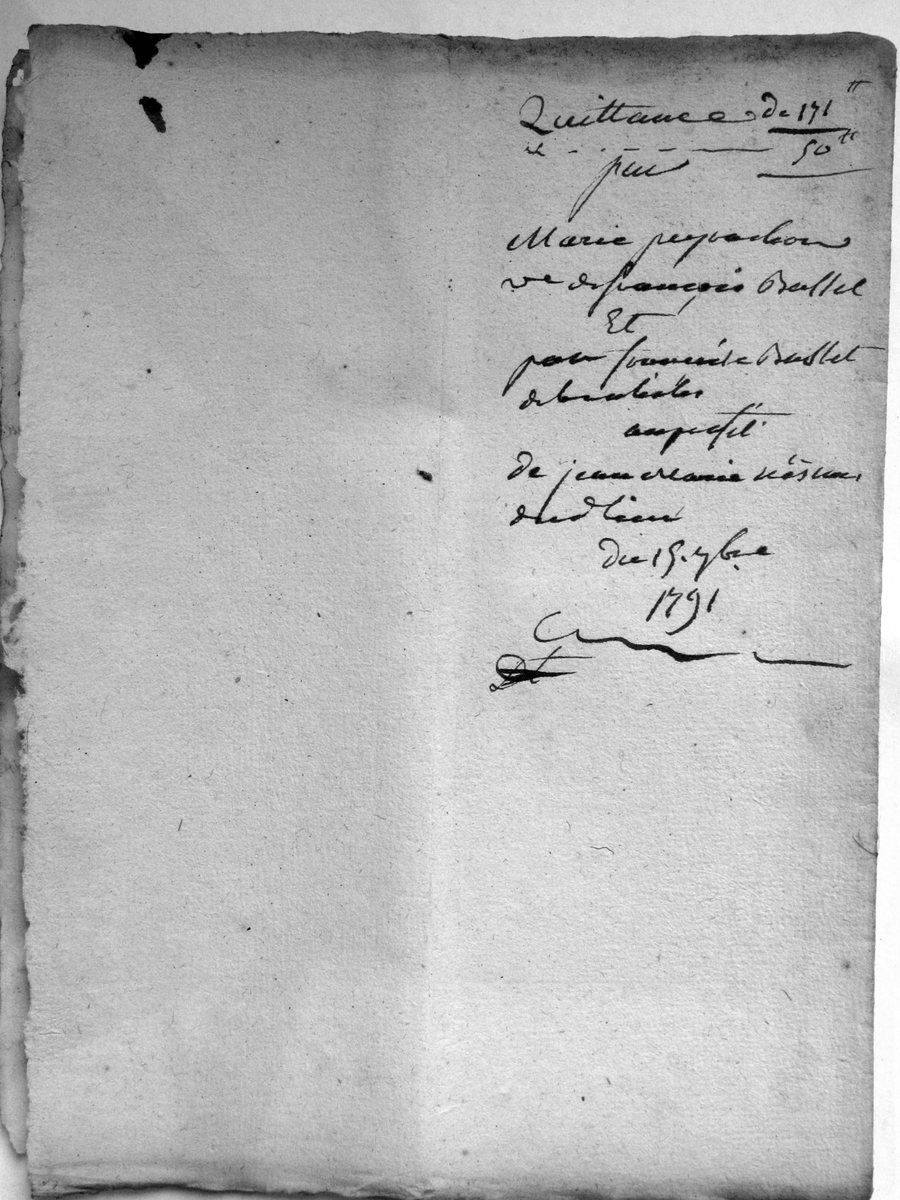 Quittance de 171 ₶
et 50 ₶
par
Marie peyrachon
ve de françois Bussel
Et
pour francoise Bussel
au profit
de jean marie
dud lieu
du 15. 7bre
1791